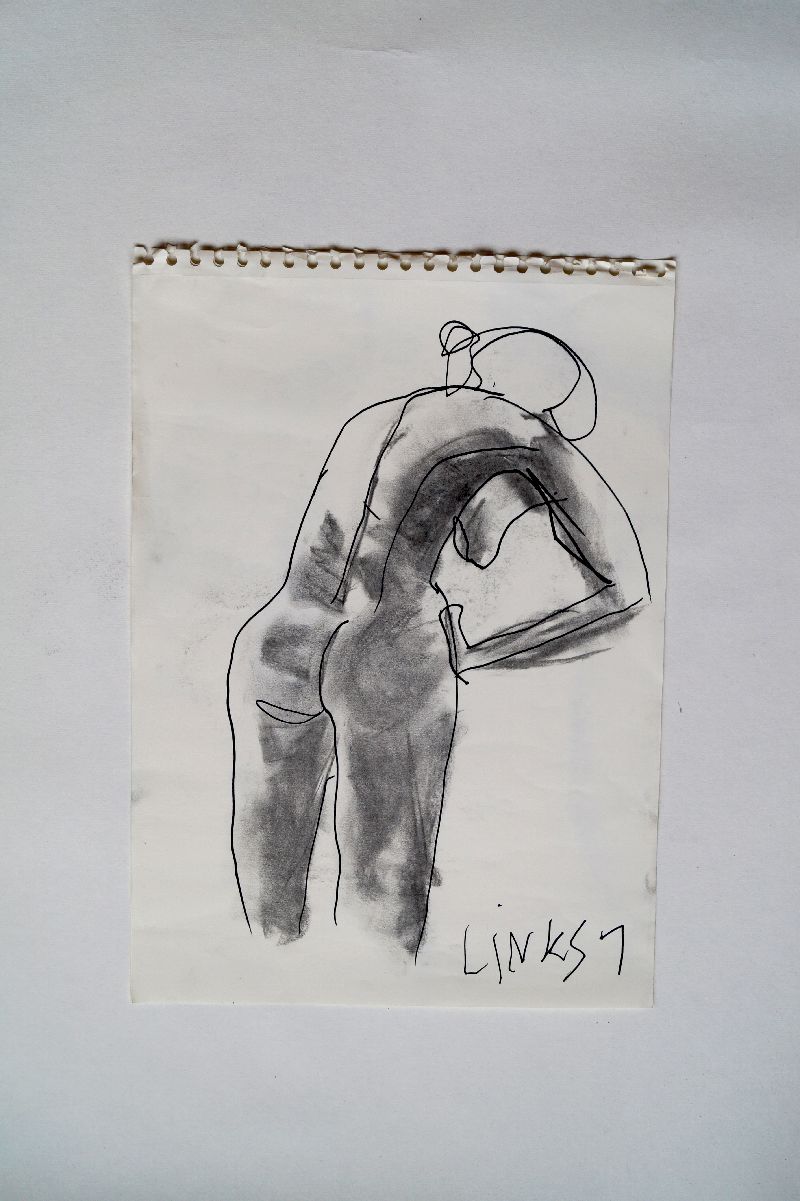 LiNKS 7